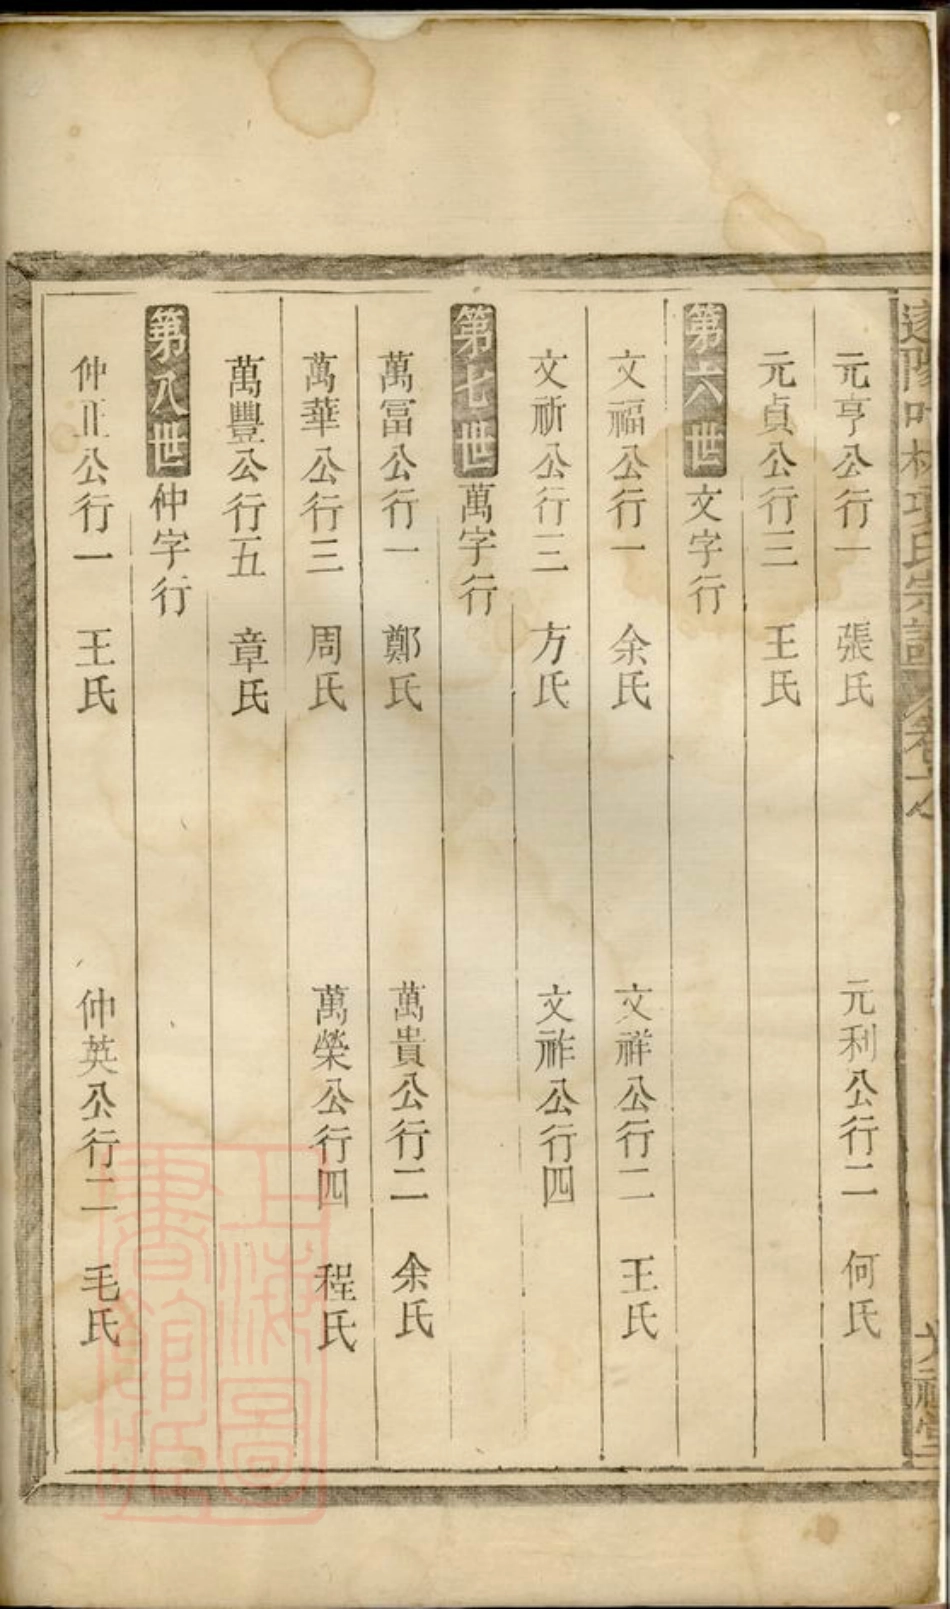 元亨公行一 張氏 元利公行二 何氏
元貞公行三 王氏
第六世 文字行
文福公行一 余氏 文祥公行二 王氏
文祈公行三 方氏 文祚公行四
第七世 萬字行
萬冨公行一 鄭氏 萬貴公行二 余氏
萬華公行三 周氏 萬榮公行四 程氏
萬豐公行五 章氏
第八世 仲字行
仲正公行一 王氏 仲英公行二 毛氏
上海圖
書館